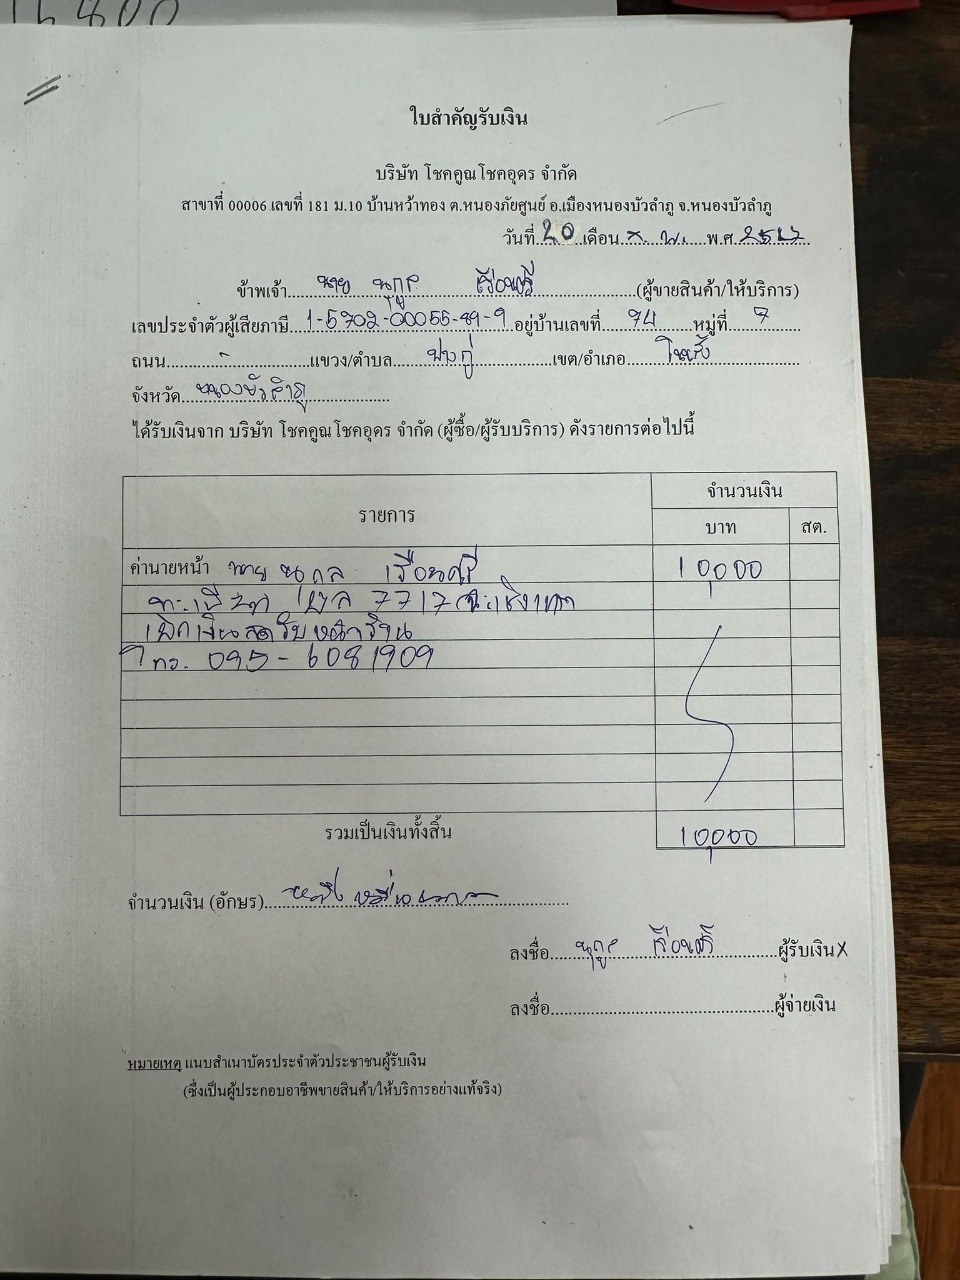 ใบสำคัญรับเงิน
บริษัท โชคคูณโชคอุดร จำกัด
สาขาที่ 00006 เลขที่ 181 ม.10 บ้านหว้าทอง ต.หนองภัยศูนย์ อ.เมืองหนองบัวลำภู จ.หนองบัวลำภู
วันที่ 20 เดือน พ.ศ.
ข้าพเจ้า นาย นุกูล เรือนศรี (ผู้ขายสินค้า/ให้บริการ)
เลขประจำตัวผู้เสียภาษี อยู่บ้านเลขที่ 74 หมู่ที่ 7
ถนน - แขวง/ตำบล เขต/อำเภอ โนนสัง
จังหวัด หนองบัวลำภู
ได้รับเงินจาก บริษัท โชคคูณโชคอุดร จำกัด (ผู้ซื้อ/ผู้รับบริการ) ดังรายการต่อไปนี้
รายการ จำนวนเงิน
บาท สต.
ค่านายหน้า นาย นุกูล เรือนศรี 10,000
ทะเบียน 7717 ฉะเชิงเทรา
เบิกเงินสดรับหน้าร้าน
โทร. 095-6081909
รวมเป็นเงินทั้งสิ้น 10,000
จำนวนเงิน (อักษร) หนึ่งหมื่นบาท
ลงชื่อ นุกูล เรือนศรี ผู้รับเงิน X
ลงชื่อ ผู้จ่ายเงิน
หมายเหตุ แนบสำเนาบัตรประจำตัวประชาชนผู้รับเงิน
(ซึ่งเป็นผู้ประกอบอาชีพขายสินค้า/ให้บริการอย่างแท้จริง)